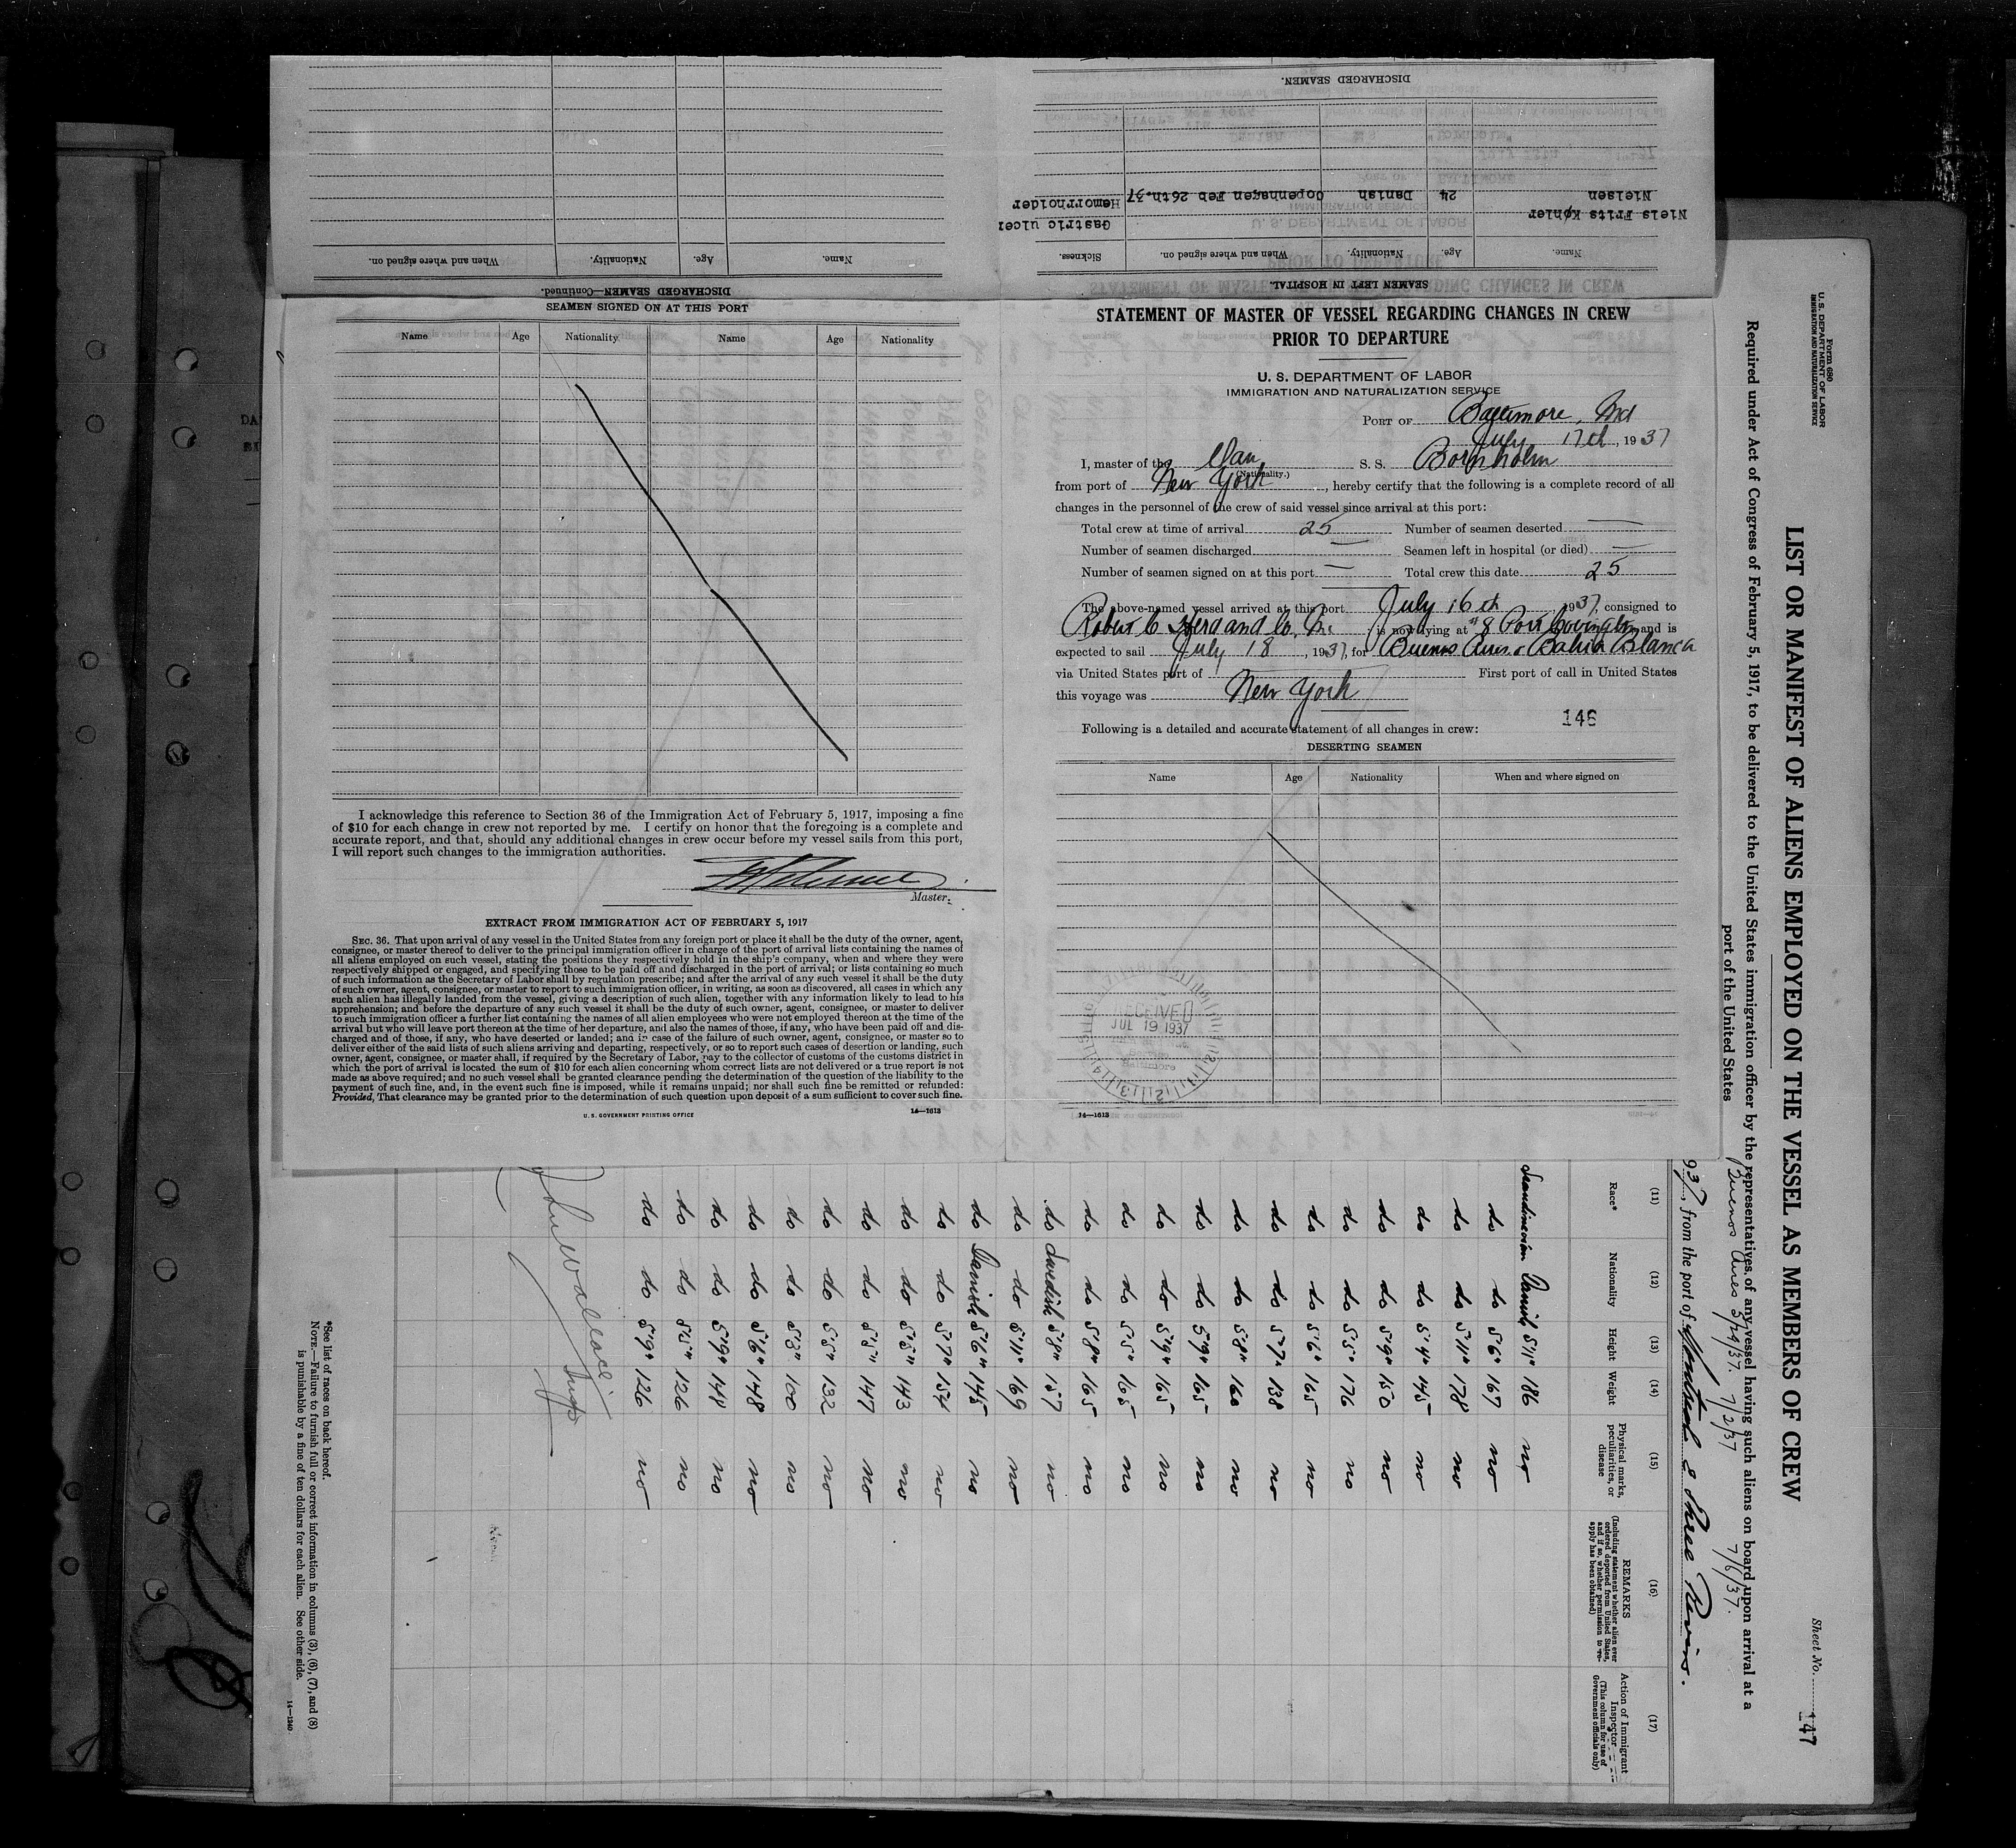 DISCHARGED SEAMEN.
Niels Frits Køhler
Nielsen
24
Danish
Copenhagen Feb 26th.37
Gastric ulcer
Hemorrhoider
Name.
Age.
Nationality.
When and where signed on.
Sickness.
SEAMEN LEFT IN HOSPITAL.
Name.
Age.
Nationality.
When and where signed on.
DISCHARGED SEAMEN—Continued.
SEAMEN SIGNED ON AT THIS PORT
Name Age Nationality Name Age Nationality
I acknowledge this reference to Section 36 of the Immigration Act of February 5, 1917, imposing a fine
of $10 for each change in crew not reported by me. I certify on honor that the foregoing is a complete and
accurate report, and that, should any additional changes in crew occur before my vessel sails from this port,
I will report such changes to the immigration authorities.
Master.
EXTRACT FROM IMMIGRATION ACT OF FEBRUARY 5, 1917
SEC. 36. That upon arrival of any vessel in the United States from any foreign port or place it shall be the duty of the owner, agent,
consignee, or master thereof to deliver to the principal immigration officer in charge of the port of arrival lists containing the names of
all aliens employed on such vessel, stating the positions they respectively hold in the ship's company, when and where they were
respectively shipped or engaged, and specifying those to be paid off and discharged in the port of arrival; or lists containing so much
of such information as the Secretary of Labor shall by regulation prescribe; and after the arrival of any such vessel it shall be the duty
of such owner, agent, consignee, or master to report to such immigration officer, in writing, as soon as discovered, all cases in which any
such alien has illegally landed from the vessel, giving a description of such alien, together with any information likely to lead to his
apprehension; and before the departure of any such vessel it shall be the duty of such owner, agent, consignee, or master to deliver
to such immigration officer a further list containing the names of all alien employees who were not employed thereon at the time of the
arrival but who will leave port thereon at the time of her departure, and also the names of those, if any, who have been paid off and dis-
charged and of those, if any, who have deserted or landed; and in case of the failure of such owner, agent, consignee, or master so to
deliver either of the said lists of such aliens arriving and departing, respectively, or so to report such cases of desertion or landing, such
owner, agent, consignee, or master shall, if required by the Secretary of Labor, pay to the collector of customs of the customs district in
which the port of arrival is located the sum of $10 for each alien concerning whom correct lists are not delivered or a true report is not
made as above required; and no such vessel shall be granted clearance pending the determination of the question of the liability to the
payment of such fine, and, in the event such fine is imposed, while it remains unpaid; nor shall such fine be remitted or refunded:
Provided, That clearance may be granted prior to the determination of such question upon deposit of a sum sufficient to cover such fine.
U. S. GOVERNMENT PRINTING OFFICE 14—1613
STATEMENT OF MASTER OF VESSEL REGARDING CHANGES IN CREW
PRIOR TO DEPARTURE
U. S. DEPARTMENT OF LABOR
IMMIGRATION AND NATURALIZATION SERVICE
PORT OF Baltimore, Md
July 17th, 1937
I, master of the Dan S. S. Bornholm
(Nationality.)
from port of New York, hereby certify that the following is a complete record of all
changes in the personnel of the crew of said vessel since arrival at this port:
Total crew at time of arrival 25 Number of seamen deserted —
Number of seamen discharged — Seamen left in hospital (or died) —
Number of seamen signed on at this port — Total crew this date 25
The above-named vessel arrived at this port July 16th, 1937, consigned to
Robert C Herd and Co. is now lying at #8 Port Covington and is
expected to sail July 18, 1937, for Buenos Aires & Bahia Blanca
via United States port of First port of call in United States
this voyage was New York
146
Following is a detailed and accurate statement of all changes in crew:
DESERTING SEAMEN
Name Age Nationality When and where signed on
RECEIVED
JUL 19 1937
Baltimore
14—1613
Form 680
U. S. DEPARTMENT OF LABOR
IMMIGRATION AND NATURALIZATION SERVICE
Sheet No. 147
LIST OR MANIFEST OF ALIENS EMPLOYED ON THE VESSEL AS MEMBERS OF CREW
Required under Act of Congress of February 5, 1917, to be delivered to the United States immigration officer by the representatives of any vessel having such aliens on board upon arrival at a
port of the United States
Buenos Aires 5/29/37. 7/2/37 7/6/37.
937, from the port of Montreal & Three Rivers.
(11) (12) (13) (14) (15) (16) (17)
Race* Nationality Height Weight Physical marks, peculiarities, or disease
REMARKS
(Including statement whether alien ever ordered deported from United States, and if so, whether permission to re-apply has been obtained)
Action of Immigrant Inspector
(This column for use of Government officials only)
Scandinavian Danish 5'11" 186 no
do do 5'6" 167 no
do do 5'11" 178 no
do do 5'4" 145 no
do do 5'9" 150 no
do do 5'5" 176 no
do do 5'6" 165 no
do do 5'7" 138 no
do do 5'8" 160 no
do do 5'9" 165 no
do do 5'9" 165 no
do do 5'5" 165 no
do do 5'8" 165 no
do Swedish 5'8" 157 no
do do 5'11" 169 no
do Danish 5'6" 145 no
do do 5'7" 154 no
do do 5'5" 143 no
do do 5'5" 147 no
do do 5'5" 132 no
do do 5'3" 100 no
do do 5'6" 148 no
do do 5'9" 144 no
do do 5'5" 126 no
do do 5'9" 126 no
Wallace
Insp
*See list of races on back hereof.
NOTE.—Failure to furnish full or correct information in columns (3), (6), (7), and (8)
is punishable by a fine of ten dollars for each alien. See other side.
14—1240